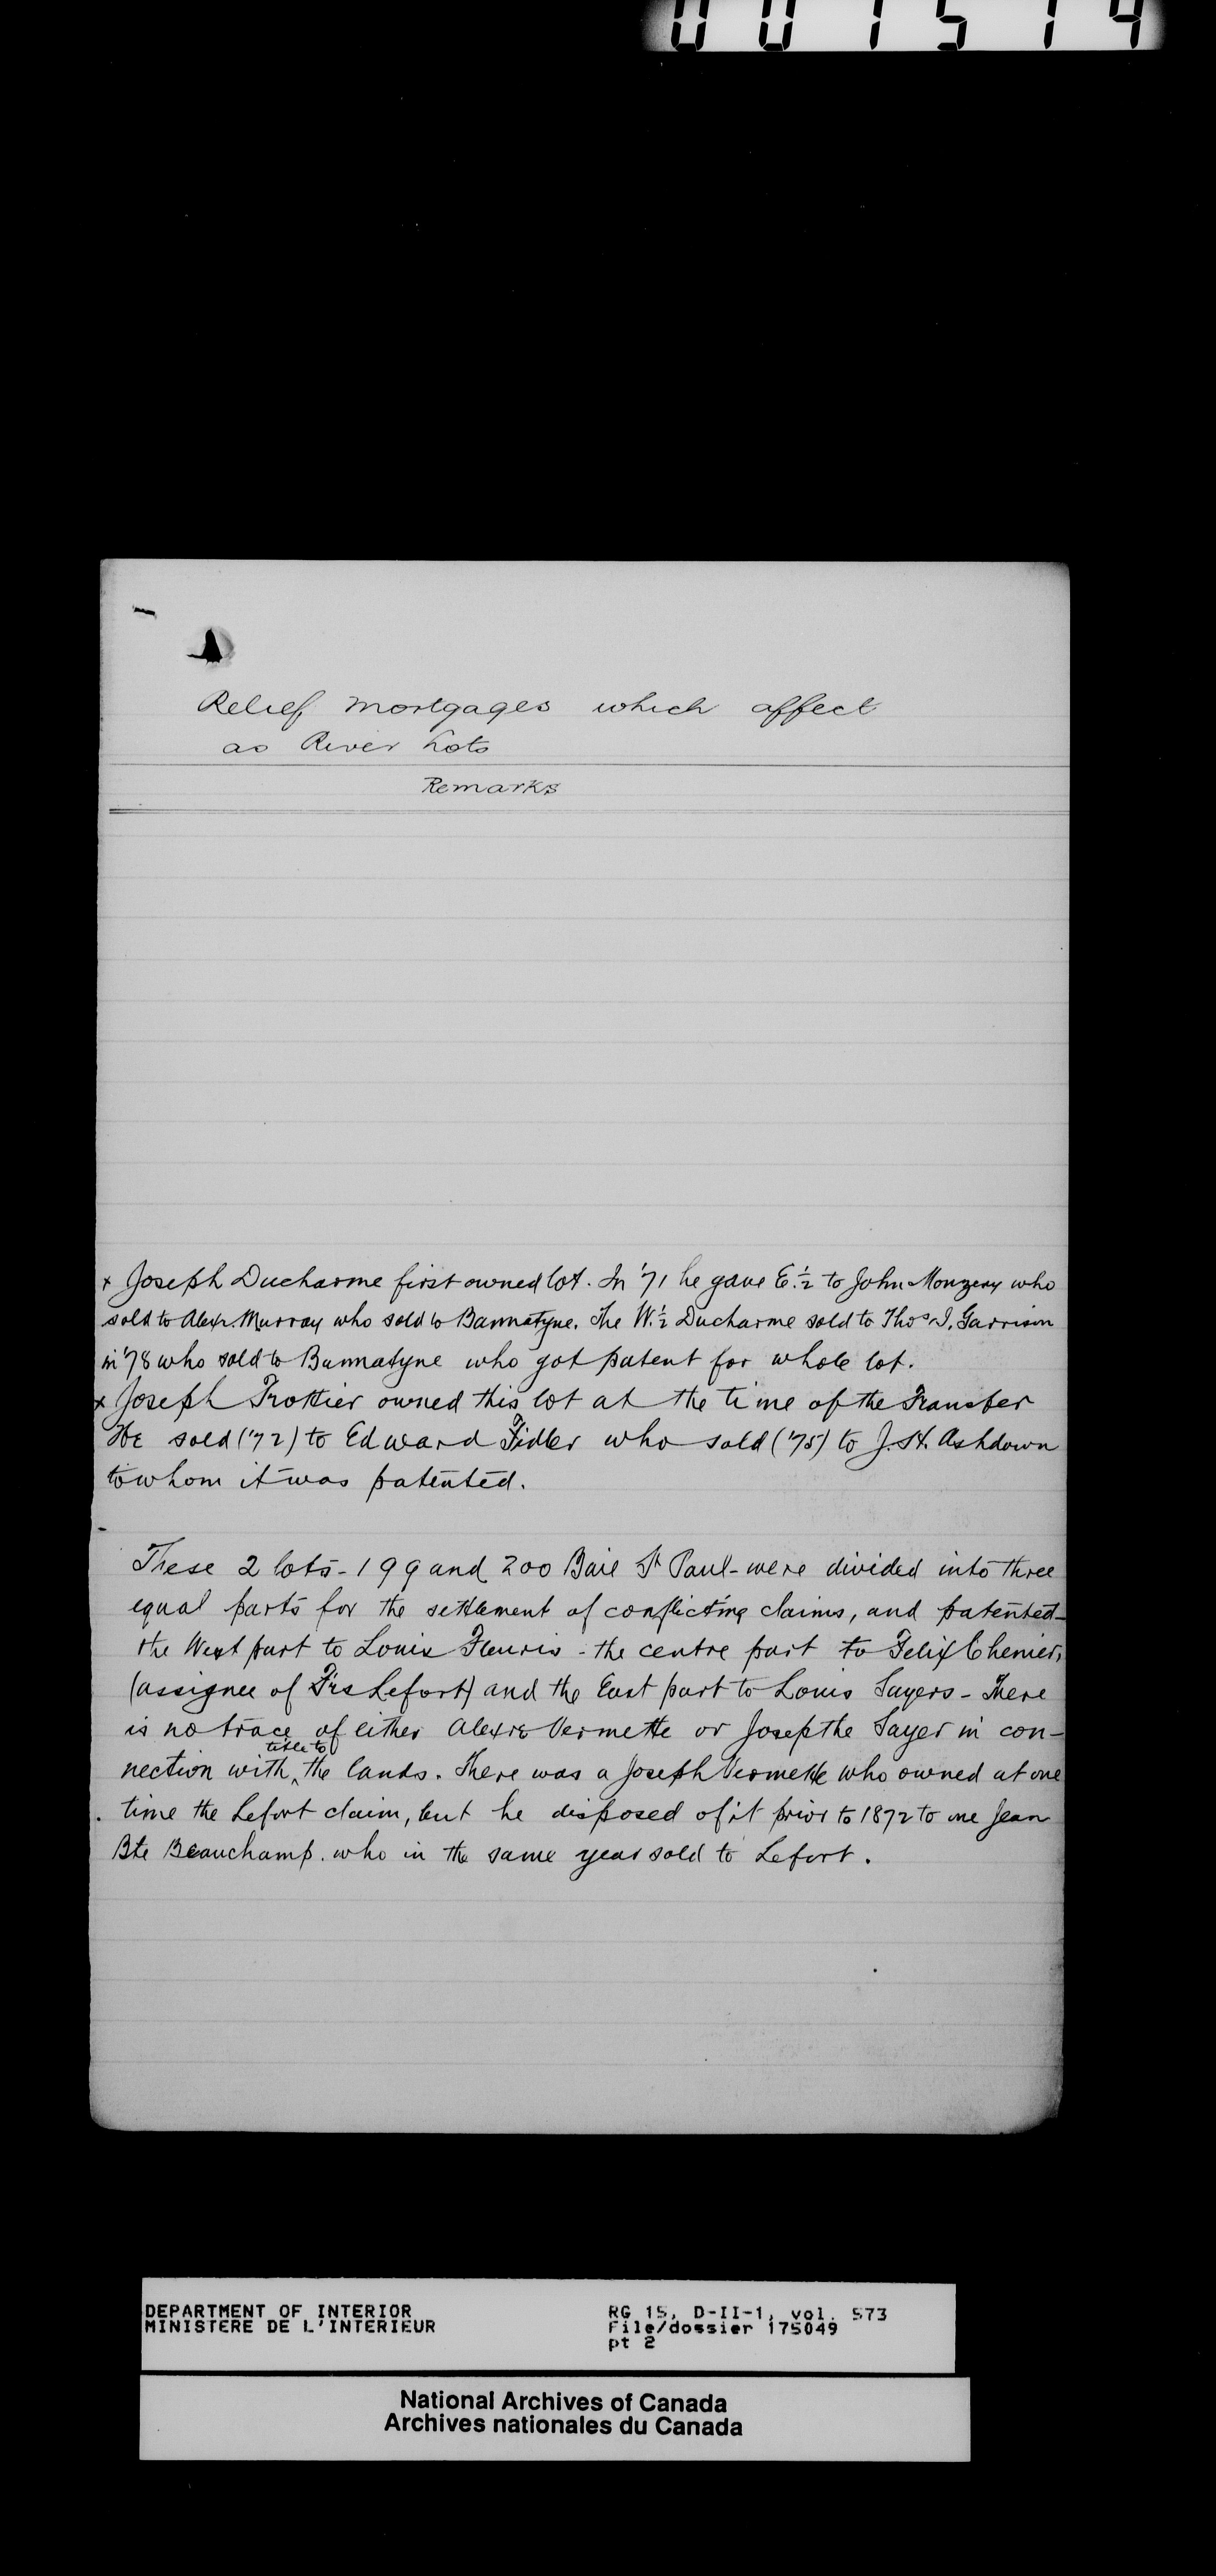 001514
Relief Mortgages which affect
as River Lots
Remarks
x Joseph Ducharme first owned lot. In '71 he gave E.½ to John Monzery who
sold to Alexr. Murray who sold to Bannatyne. The W.½ Ducharme sold to Thos. I. Garrison
in '78 who sold to Bannatyne who got patent for whole lot.
x Joseph Trottier owned this lot at the time of the Transfer
He sold ('72) to Edward Fidler who sold ('75) to J. H. Ashdown
to whom it was patented.
These 2 lots - 199 and 200 Baie St Paul - were divided into three
equal parts for the settlement of conflicting claims, and patented -
the West part to Louis Fleuris - the centre part to Felix Chenier,
(assignee of Frs Lefort) and the East part to Louis Sayers - There
is no trace of either Alexre Vermette or Josepthe Sayer in con-
title to
nection with ^ the lands. There was a Joseph Vermette who owned at one
time the Lefort claim, but he disposed of it prior to 1872 to one Jean
Bte Beauchamp. who in the same year sold to Lefort.
DEPARTMENT OF INTERIOR
MINISTERE DE L'INTERIEUR
RG 15, D-II-1, vol. 573
File/dossier 175049
pt 2
National Archives of Canada
Archives nationales du Canada